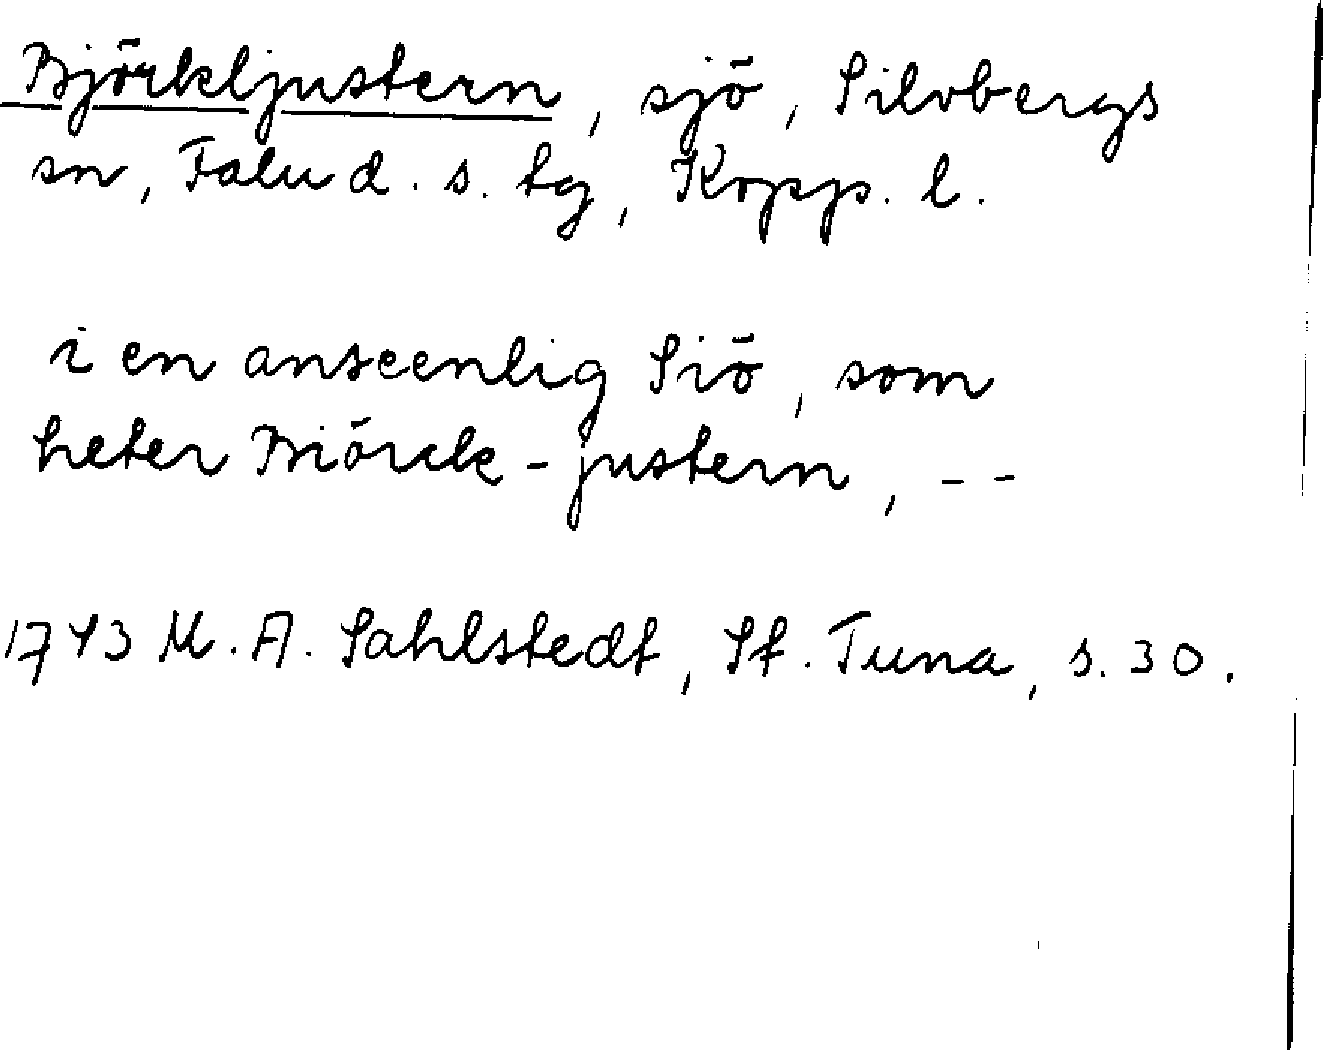 Björkljustern, sjö, Silvbergs
sn, Falu d. s. tg, Kopp. l.
i en anseenlig Siö, som
heter Biörck-justern, - -
1743 M. A. Sahlstedt, St. Tuna, s. 30.